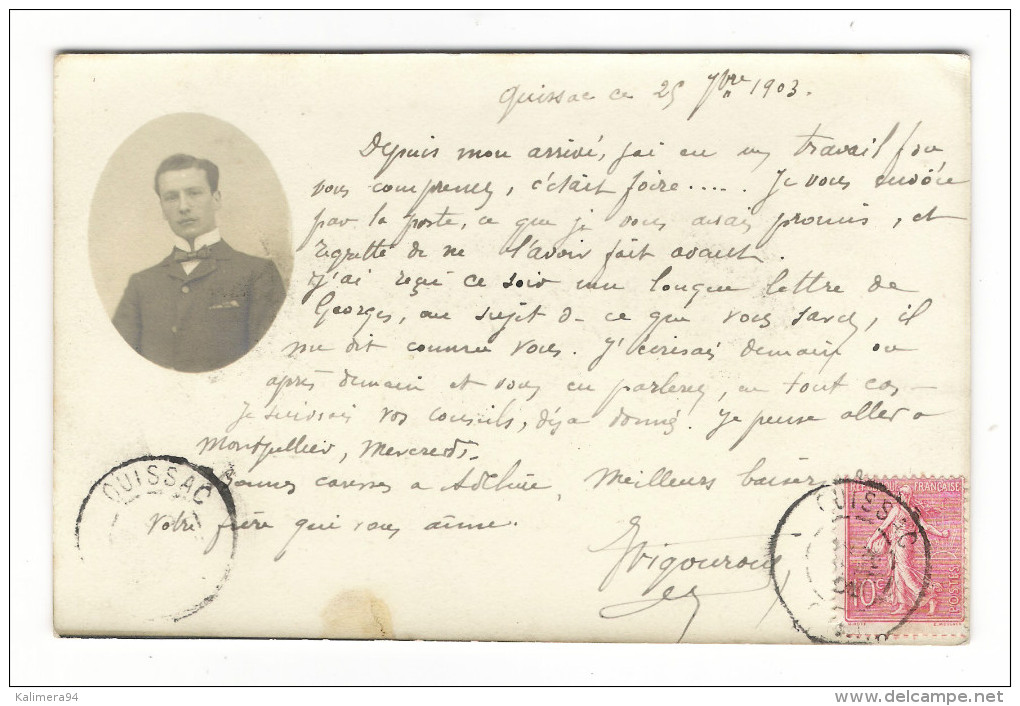 Quissac ce 25 7bre 1903.
Depuis mon arrivé, j'ai eu un travail fou
vous comprenez, c'était foire..... Je vous envoie
par la poste, ce que je vous avais promis, et
regrette de ne l'avoir fait avant.
J'ai reçu ce soir une longue lettre de
Georges, au sujet de ce que vous savez, il
me dit comme vous. J'écrirais demain ou
après demain et vous en parlerez, en tout cas
Je suivrais vos conseils, déja donné. Je pense aller a
Montpellier, Mercredi.
Bonnes caresses a Adeline, Meilleurs baisers
Votre frère qui vous aime.
Vigouroux
QUISSAC
QUISSAC
REPUBLIQUE FRANÇAISE
10c
POSTES
Kalimera94
delcampe.net